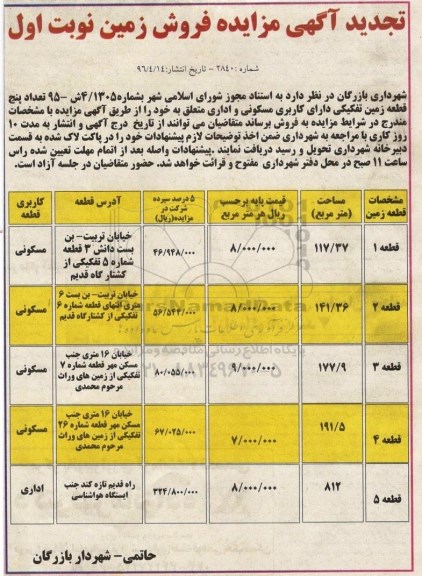 تجدید آگهی مزایده فروش زمین نوبت اول
شماره: ۲۸۴۰ - تاریخ انتشار: ۹۶/۴/۱۴
شهرداری بازرگان در نظر دارد به استناد مجوز شورای اسلامی شهر بشماره ۴/۱۳۰۵ش -۹۵ تعداد پنج
قطعه زمین تفکیکی دارای کاربری مسکونی و اداری متعلق به خود را از طریق آگهی مزایده با مشخصات
مندرج در شرایط مزایده به فروش برساند متقاضیان می توانند از تاریخ درج آگهی و انتشار به مدت ۱۰
روز کاری با مراجعه به شهرداری ضمن اخذ توضیحات لازم پیشنهادات خود را در پاکت لاک شده به قسمت
دبیرخانه شهرداری تحویل و رسید دریافت نمایند .پیشنهادات واصله بعد از اتمام مهلت تعیین شده راس
ساعت ۱۱ صبح در محل دفتر شهرداری مفتوح و قرائت خواهد شد. حضور متقاضیان در جلسه آزاد است.
مشخصات قطعه زمین
مساحت (متر مربع)
قیمت پایه برحسب ریال هر متر مربع
۵ درصد سپرده شرکت در مزایده(ریال)
آدرس قطعه
کاربری قطعه
قطعه ۱
۱۱۷/۳۷
۸/۰۰۰/۰۰۰
۴۶/۹۴۸/۰۰۰
خیابان تربیت- بن
بست دانش ۳ قطعه
شماره ۵ تفکیکی از
کشتار گاه قدیم
مسکونی
قطعه ۲
۱۴۱/۳۶
۸/۰۰۰/۰۰۰
۵۶/۵۴۴/۰۰۰
خیابان تربیت- بن بست ۶
متری انتهای قطعه شماره ۶
تفکیکی از کشتارگاه قدیم
مسکونی
قطعه ۳
۱۷۷/۹
۹/۰۰۰/۰۰۰
۸۰/۰۵۵/۰۰۰
خیابان ۱۶ متری جنب
مسکن مهر قطعه شماره ۷
تفکیکی از زمین های وراث
مرحوم محمدی
مسکونی
قطعه ۴
۱۹۱/۵
۷/۰۰۰/۰۰۰
۶۷/۰۲۵/۰۰۰
خیابان ۱۶ متری جنب
مسکن مهر قطعه شماره ۲۶
تفکیکی از زمین های وراث
مرحوم محمدی
مسکونی
قطعه ۵
۸۱۲
۸/۰۰۰/۰۰۰
۳۲۴/۸۰۰/۰۰۰
راه قدیم تازه کند جنب
ایستگاه هواشناسی
اداری
حاتمی- شهردار بازرگان
پایگاه اطلاع رسانی مناقصه و مزایده